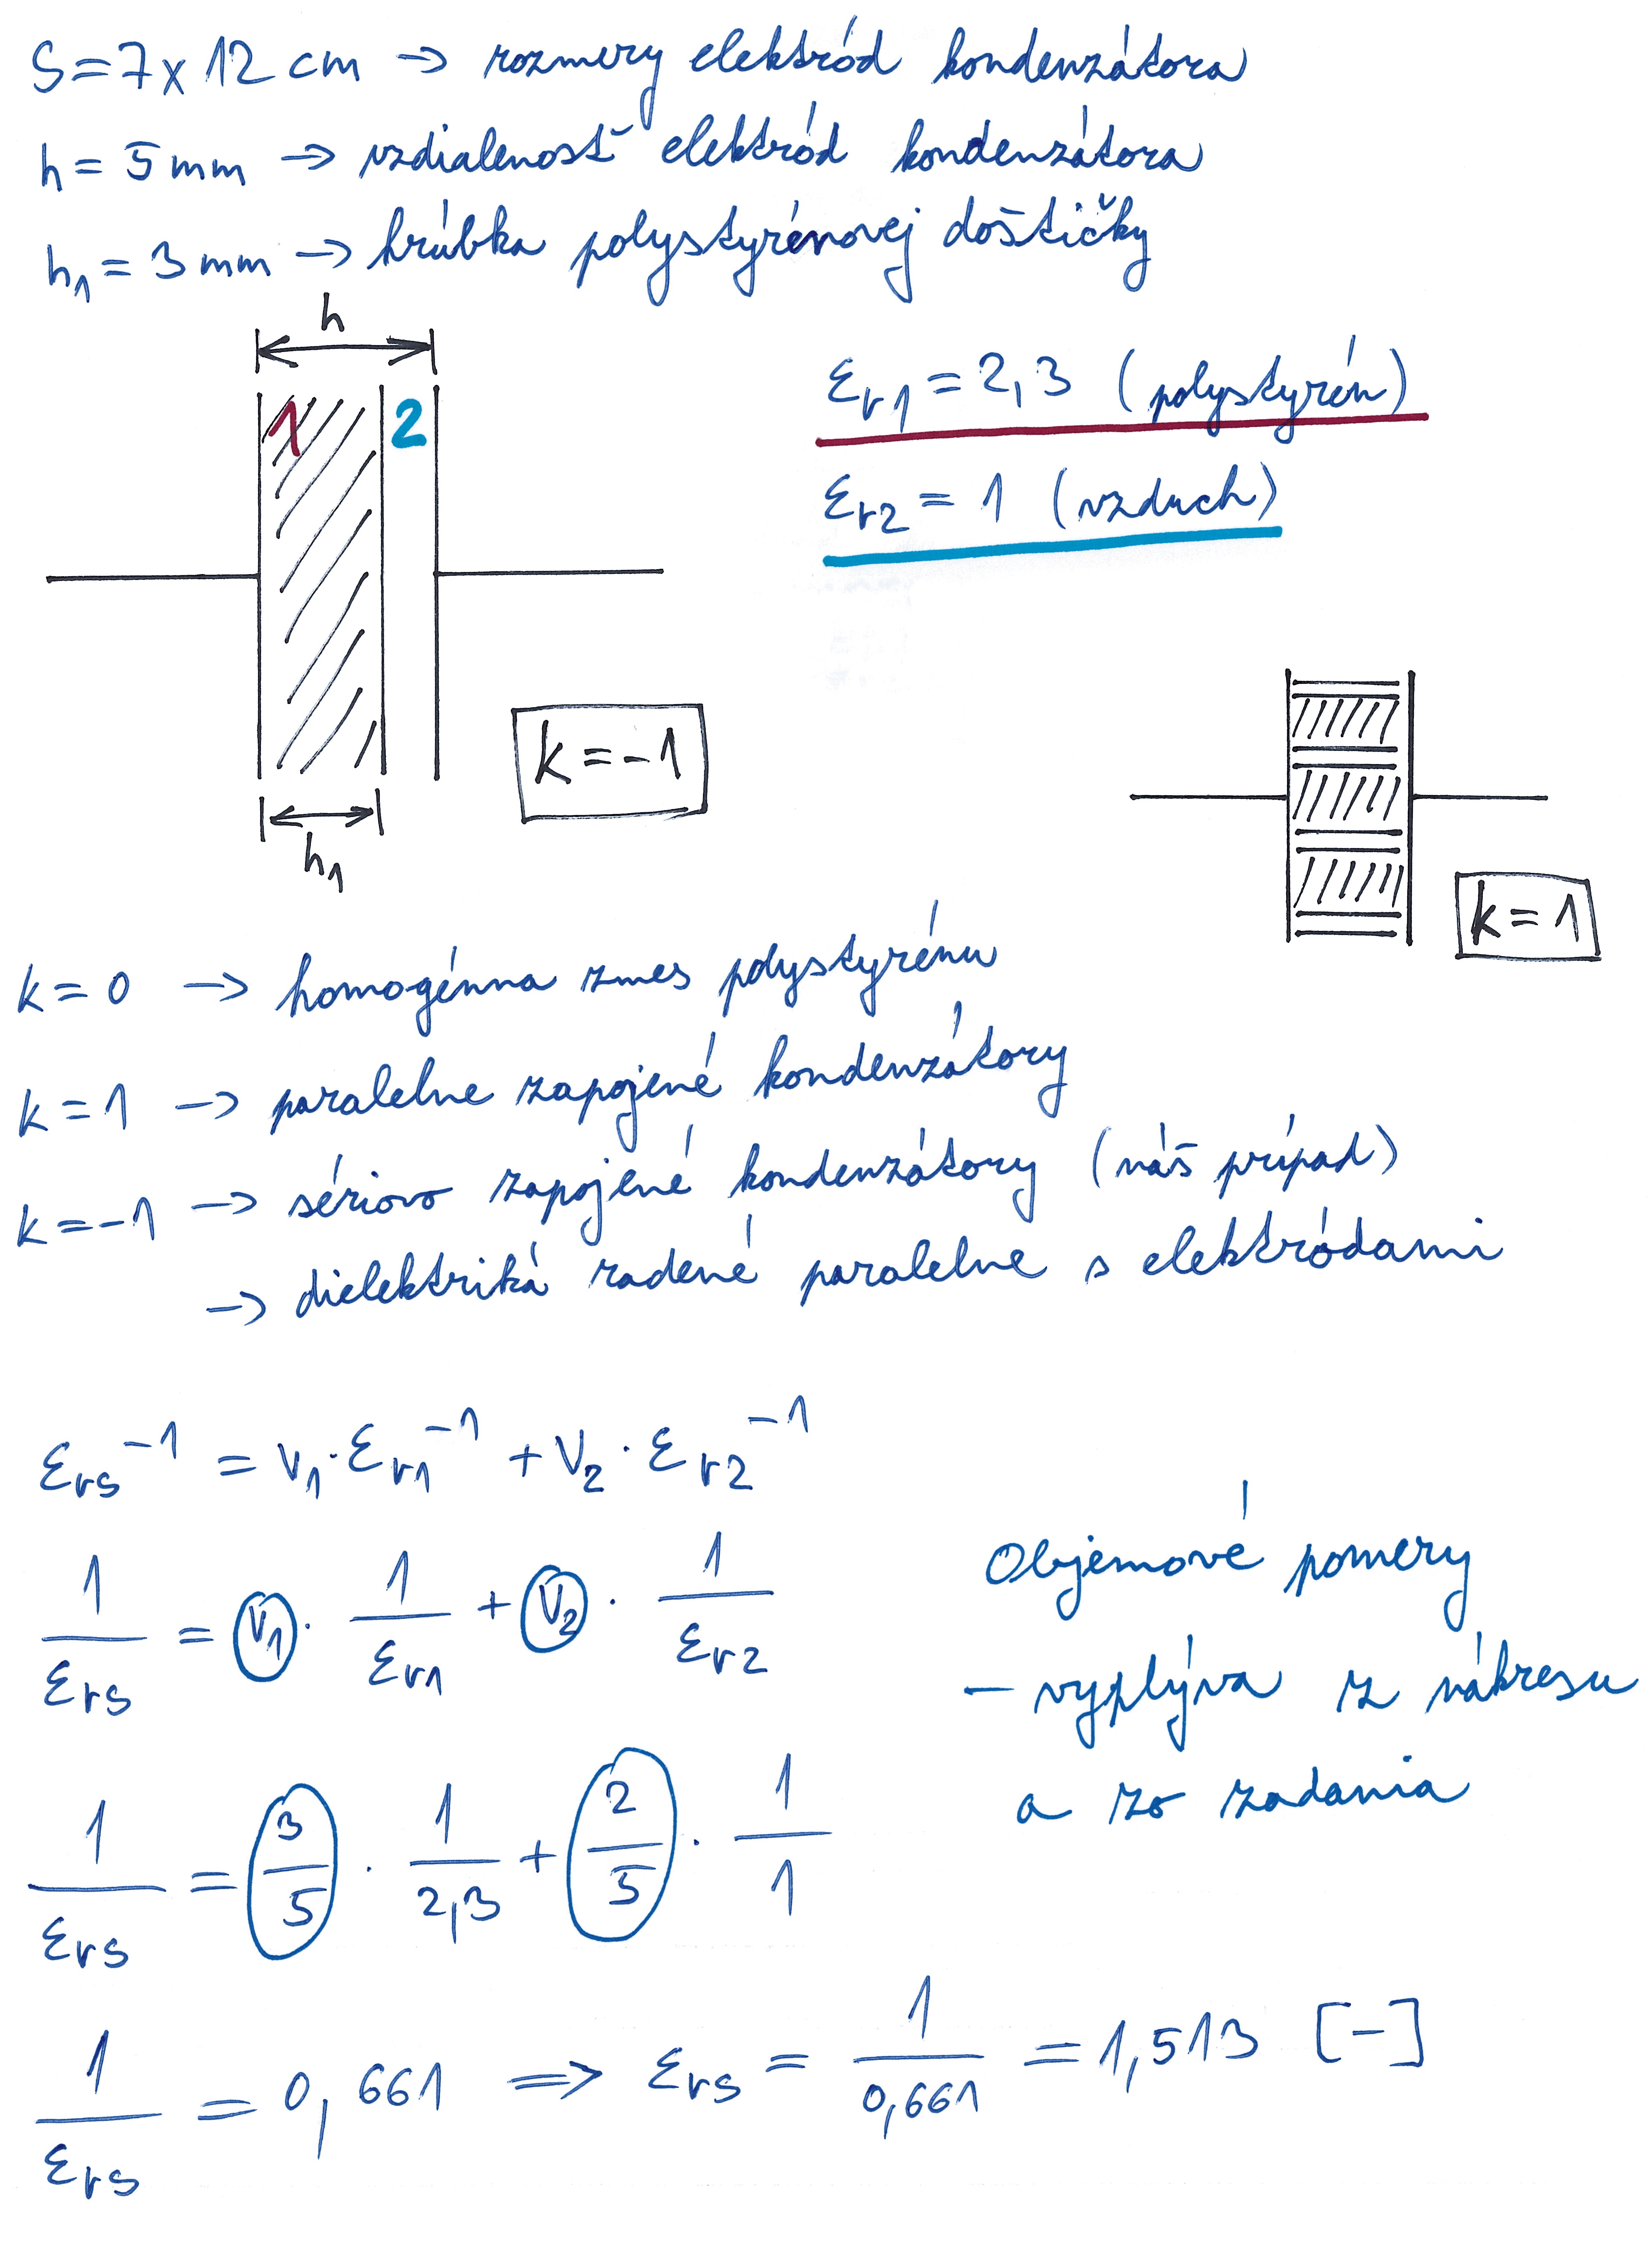 S = 7 x 12 cm → rozmery elektród kondenzátora
h = 5 mm → vzdialenosť elektród kondenzátora
h₁ = 3 mm → hrúbka polystyrénovej doštičky
h
1 2
εr1 = 2,3 (polystyrén)
εr2 = 1 (vzduch)
k = -1
h₁
k = 1
k = 0 → homogénna zmes polystyrénu
k = 1 → paralelne zapojené kondenzátory
k = -1 → sériovo zapojené kondenzátory (náš prípad)
→ dielektriká radené paralelne s elektródami
εrs⁻¹ = V₁ · εr1⁻¹ + V₂ · εr2⁻¹
1/εrs = V₁ · 1/εr1 + V₂ · 1/εr2
Objemové pomery
- vyplýva z nákresu
a zo zadania
1/εrs = 3/5 · 1/2,3 + 2/5 · 1/1
1/εrs = 0,661 ⇒ εrs = 1/0,661 = 1,513 [-]